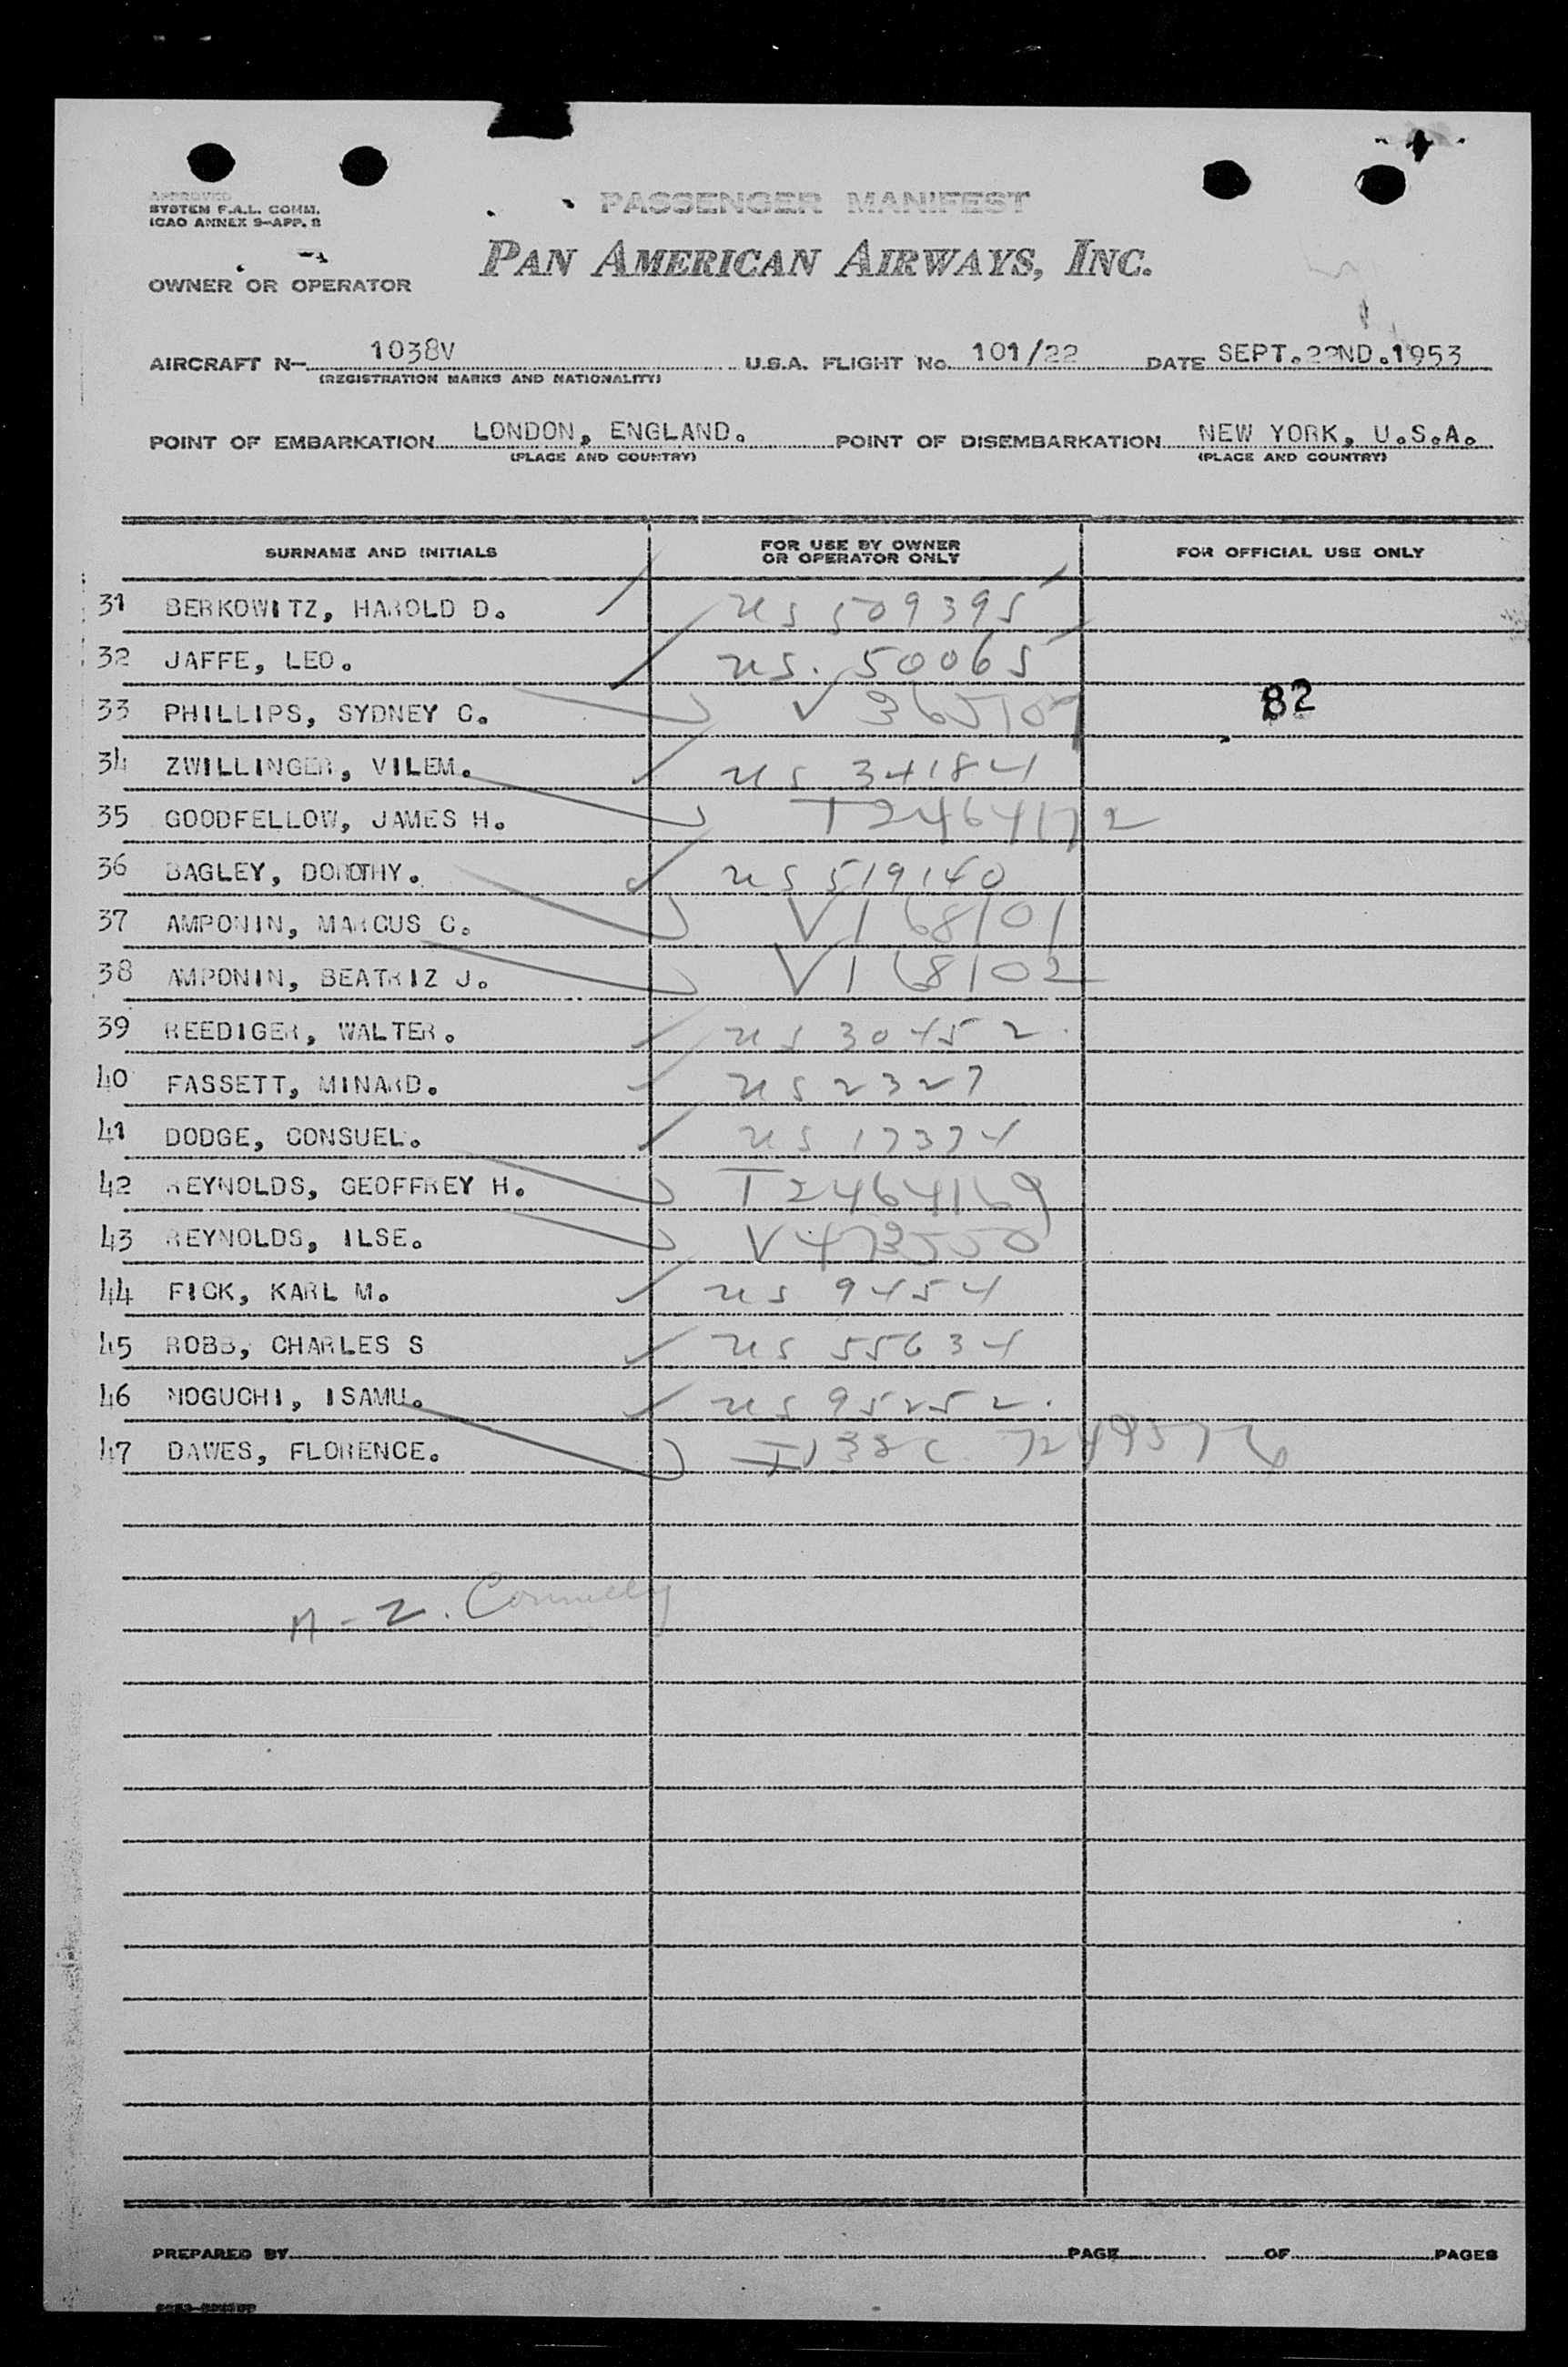 APPROVED
SYSTEM F.A.L. COMM.
ICAO ANNEX 9-APP. 8
PASSENGER MANIFEST
PAN AMERICAN AIRWAYS, INC.
OWNER OR OPERATOR
AIRCRAFT N- 1038V U.S.A. FLIGHT No. 101/22 DATE SEPT.22ND.1953
(REGISTRATION MARKS AND NATIONALITY)
POINT OF EMBARKATION LONDON, ENGLAND. POINT OF DISEMBARKATION NEW YORK, U.S.A.
(PLACE AND COUNTRY) (PLACE AND COUNTRY)
SURNAME AND INITIALS FOR USE BY OWNER OR OPERATOR ONLY FOR OFFICIAL USE ONLY
31 BERKOWITZ, HAROLD D. US 509395
32 JAFFE, LEO. US. 50065
33 PHILLIPS, SYDNEY C. V 82
34 ZWILLINGER, VILEM. US 34184
35 GOODFELLOW, JAMES H. T2464172
36 BAGLEY, DOROTHY. US 519140
37 AMPONIN, MARCUS C. V168101
38 AMPONIN, BEATRIZ J. V168102
39 REEDIGER, WALTER. US 30452
40 FASSETT, MINARD. US 2327
41 DODGE, CONSUEL. US 17374
42 REYNOLDS, GEOFFREY H. T2464169
43 REYNOLDS, ILSE. V473550
44 FICK, KARL M. US 9454
45 ROBB, CHARLES S US 55634
46 NOGUCHI, ISAMU. US 95252.
47 DAWES, FLORENCE.
M-Z. Connelly
PREPARED BY PAGE OF PAGES